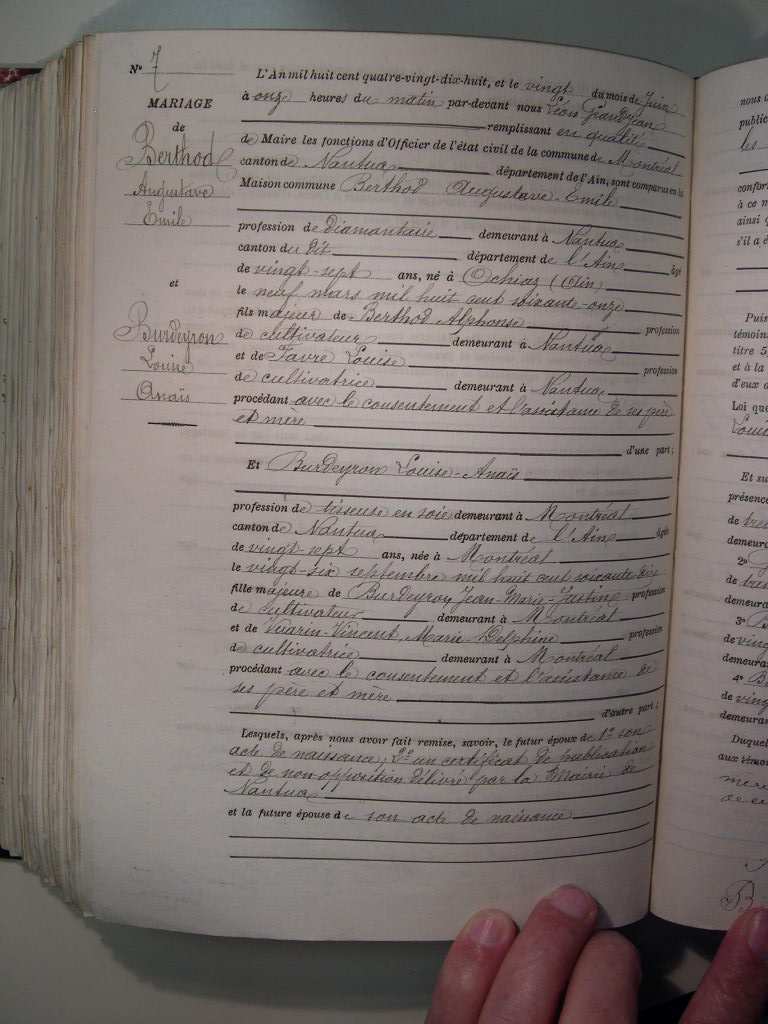 No 7
MARIAGE
de
Berthod
Augustave
Emile
et
Burdeyron
Louise
Anaïs
L'An mil huit cent quatre-vingt-dix-huit, et le vingt du mois de Juin
à onze heures du matin par-devant nous Léon Grandjean
remplissant en qualité
de Maire les fonctions d'Officier de l'état civil de la commune de Montréal
canton de Nantua département de l'Ain, sont comparus en la
Maison commune Berthod Augustave Emile
profession de diamantaire demeurant à Nantua
canton du dit département de l'Ain âgé
de vingt-sept ans, né à Ochiaz (Ain
le neuf mars mil huit cent soixante-onze
fils majeur de Berthod Alphonse profession
de cultivateur demeurant à Nantua
et de Favre Louise profession
de cultivatrice demeurant à Nantua
procédant avec le consentement et l'assistance de ses père
et mère
d'une part;
Et Burdeyron Louise-Anaïs
profession de tisseuse en soie demeurant à Montréal
canton de Nantua département de l'Ain âgée
de vingt-sept ans, née à Montréal
le vingt-six septembre mil huit cent soixante dix
fille majeure de Burdeyron Jean-Marie-Justine profession
de cultivateur demeurant à Montréal
et de Vuarin-Vincent, Marie Delphine profession
de cultivatrice demeurant à Montréal
procédant avec le consentement et l'assistance de
ses père et mère
d'autre part;
Lesquels, après nous avoir fait remise, savoir, le futur époux de 1º son
acte de naissance, 2º un certificat de publication
et de non-opposition délivré par la Mairie de
Nantua
et la future épouse de son acte de naissance
nous
public
les
confor
à ce
ainsi
s'il a é
Puis
témoin
titre 5,
et à la
d'eux
Loi que
Louis
Et su
présence
de
demeura
2º
de
demeura
3º
de ving
demeura
4º
de ving
demeura
Duquel
aux
mère